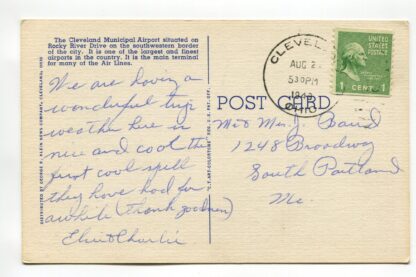 The Cleveland Municipal Airport situated on
Rocky River Drive on the southwestern border
of the city. It is one of the largest and finest
airports in the country. It is the main terminal
for many of the Air Lines.
We are having a
wonderful trip
weather here is
nice and cool the
first cool spell
they have had for
awhile (thank goodness)
Charlie
POST CARD
CLEVEL
AUG 2
530PM
OHIO
UNITED STATES
POSTAGE
1 CENT 1
Mr & Mrs. J. Baird
1248 Broadway
South Portland
Me.